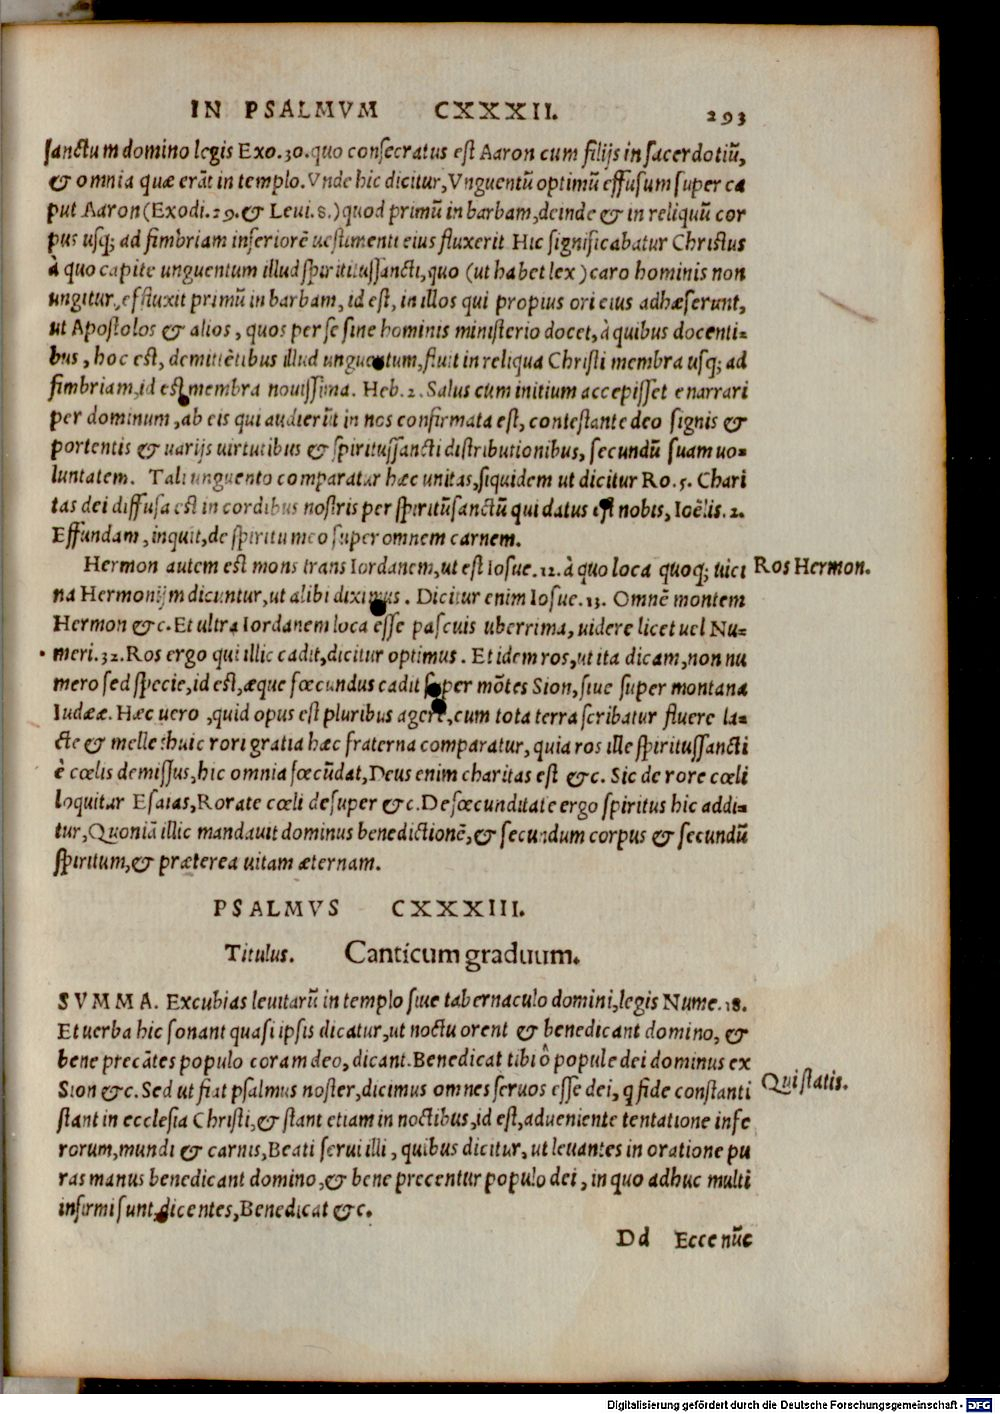 IN PSALMVM CXXXII. 293
sanctum domino legis Exo.30.quo consecratus est Aaron cum filijs in sacerdotiũ,
& omnia quæ erãt in templo. Vnde hic dicitur, Vnguentũ optimũ effusum super ca
put Aaron (Exodi.29.& Leui.8.) quod primũ in barbam, deinde & in reliquũ cor
pus usq; ad fimbriam inferiorẽ uestimenti eius fluxerit Hic significabatur Christus
à quo capite unguentum illud spiritussancti, quo (ut habet lex) caro hominis non
ungitur, effluxit primũ in barbam, id est, in illos qui propius ori eius adhæserunt,
ut Apostolos & alios, quos per se sine hominis ministerio docet, à quibus docenti-
bus, hoc est, demittẽtibus illud unguentum, fluit in reliqua Christi membra usq; ad
fimbriam, id est membra nouissima. Heb. 2. Salus cum initium accepisset enarrari
per dominum, ab eis qui audierũt in nos confirmata est, contestante deo signis &
portentis & uarijs uirtutibus & spiritussancti distributionibus, secundũ suam uo-
luntatem. Tali unguento comparatur hæc unitas, siquidem ut dicitur Ro. 5. Chari
tas dei diffusa est in cordibus nostris per spiritũsanctũ qui datus est nobis, Ioẽlis. 2.
Effundam, inquit, de spiritu meo super omnem carnem.
Hermon autem est mons trans Iordanem, ut est Iosue.12. à quo loca quoq; uici
Ros Hermon.
na Hermonijm dicuntur, ut alibi diximus. Dicitur enim Iosue. 13. Omnẽ montem
Hermon &c. Et ultra Iordanem loca esse pascuis uberrima, uidere licet uel Nu-
meri. 32. Ros ergo qui illic cadit, dicitur optimus. Et idem ros, ut ita dicam, non nu
mero sed specie, id est, æque fœcundus cadit super mõtes Sion, siue super montana
Iudææ. Hæc uero, quid opus est pluribus agere, cum tota terra scribatur fluere la-
cte & melle: huic rori gratia hæc fraterna comparatur, quia ros ille spiritussancti
è cœlis demissus, hic omnia fœcũdat, Deus enim charitas est &c. Sic de rore cœli
loquitur Esaias, Rorate cœli desuper &c. De fœcunditate ergo spiritus hic addi-
tur, Quoniã illic mandauit dominus benedictionẽ, & secundum corpus & secundũ
spiritum, & præterea uitam æternam.
PSALMVS CXXXIII.
Titulus. Canticum graduum.
SVMMA. Excubias leuitarũ in templo siue tabernaculo domini, legis Nume. 18.
Et uerba hic sonant quasi ipsis dicatur, ut noctu orent & benedicant domino, &
bene precãtes populo coram deo, dicant. Benedicat tibi ô popule dei dominus ex
Sion &c. Sed ut fiat psalmus noster, dicimus omnes seruos esse dei, q fide constanti
Qui statis.
stant in ecclesia Christi, & stant etiam in noctibus, id est, adueniente tentatione infe
rorum, mundi & carnis, Beati serui illi, quibus dicitur, ut leuantes in oratione pu
ras manus benedicant domino, & bene precentur populo dei, in quo adhuc multi
infirmi sunt, dicentes, Benedicat &c.
Dd Ecce nũc
Digitalisierung gefördert durch die Deutsche Forschungsgemeinschaft - DFG